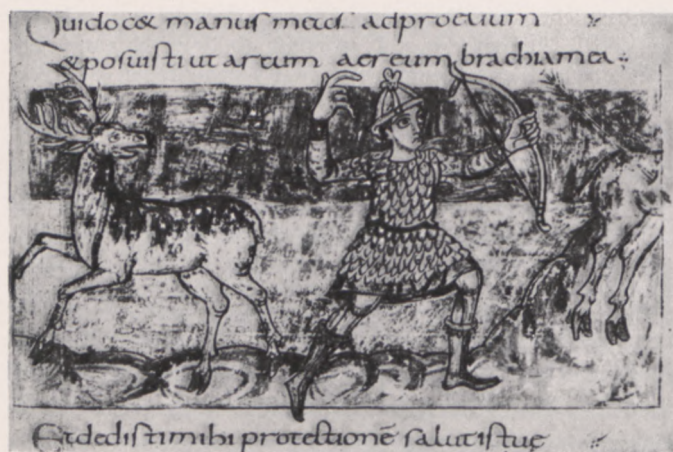 Quidoc& manus meas adproelium
&posuisti ut arcum aereum brachiamea
Et dedisti mihi protectionē salutistuę